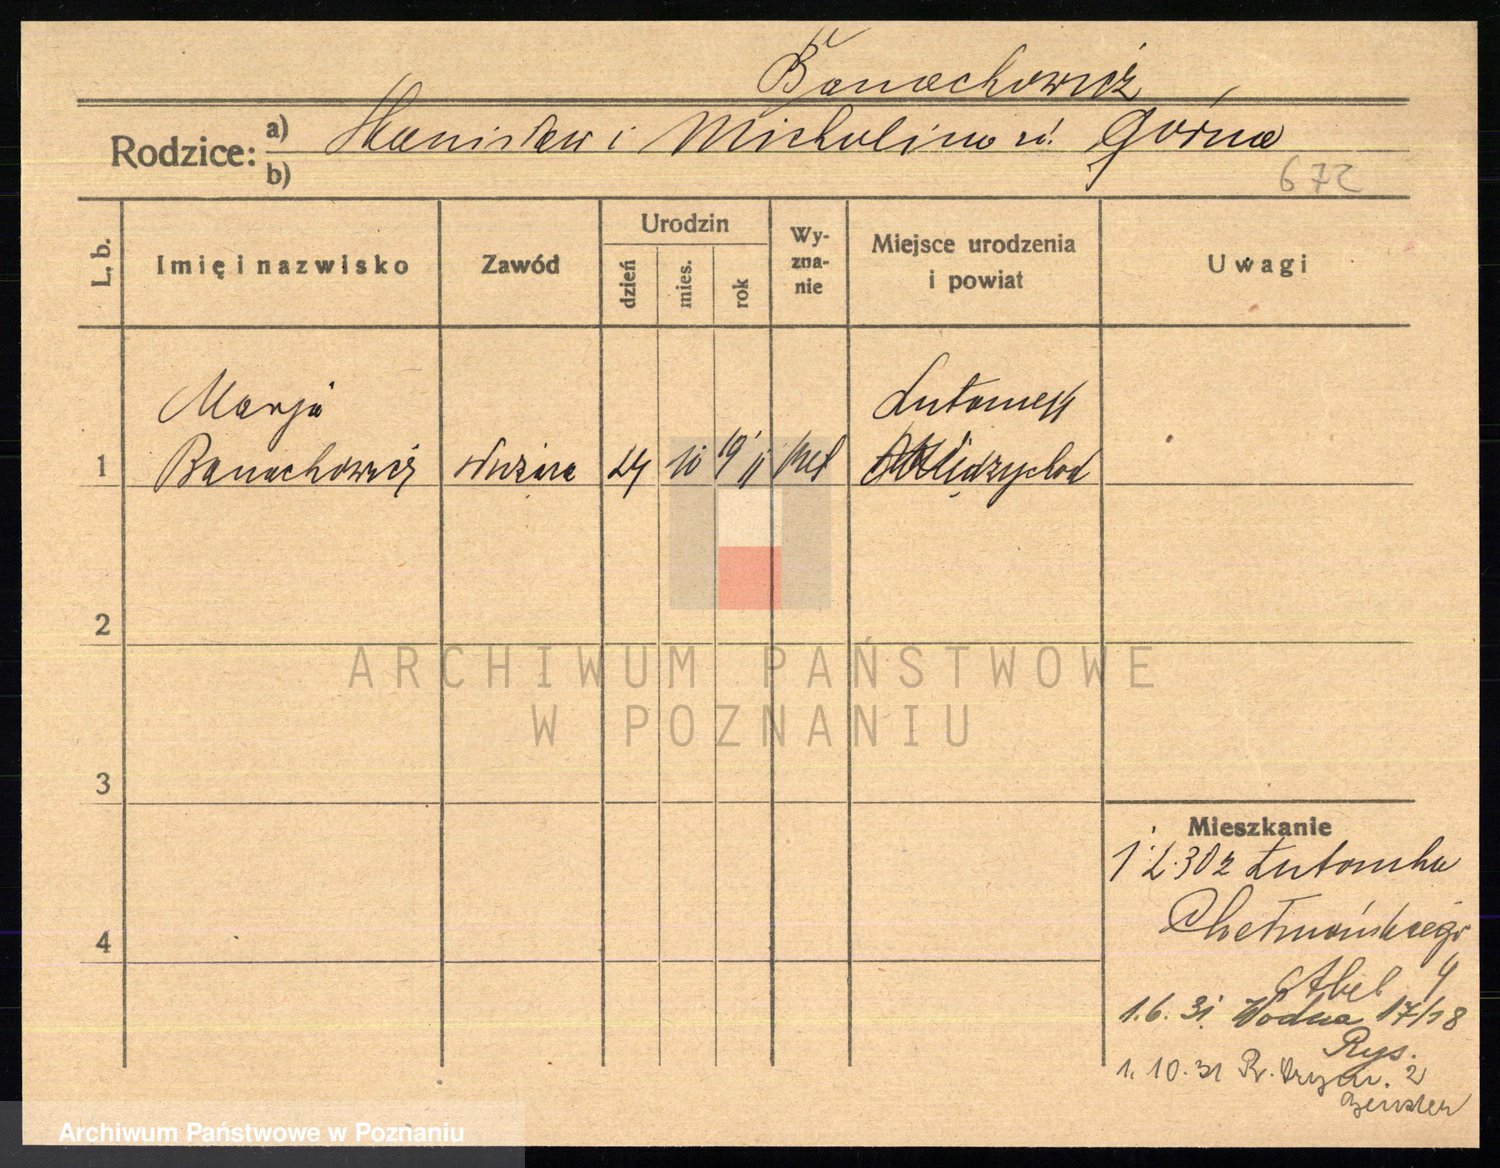 Banachowicz
Rodzice: a) Stanisław i Michalina z d. Górna
b)
672
L. b.
Imię i nazwisko
Zawód
Urodzin
dzień
mies.
rok
Wy-
zna-
nie
Miejsce urodzenia
i powiat
Uwagi
Marja
Lutomek
1 Banachowicz służąca 24 10 19 11 kat Międzychod
2
3
4
Mieszkanie
30 z Lutomka
Chełmońskiego
Abel 9
1.6.31 Wodna 17/18
Rys.
1.10.31 2
ARCHIWUM PAŃSTWOWE
W POZNANIU
Archiwum Państwowe w Poznaniu